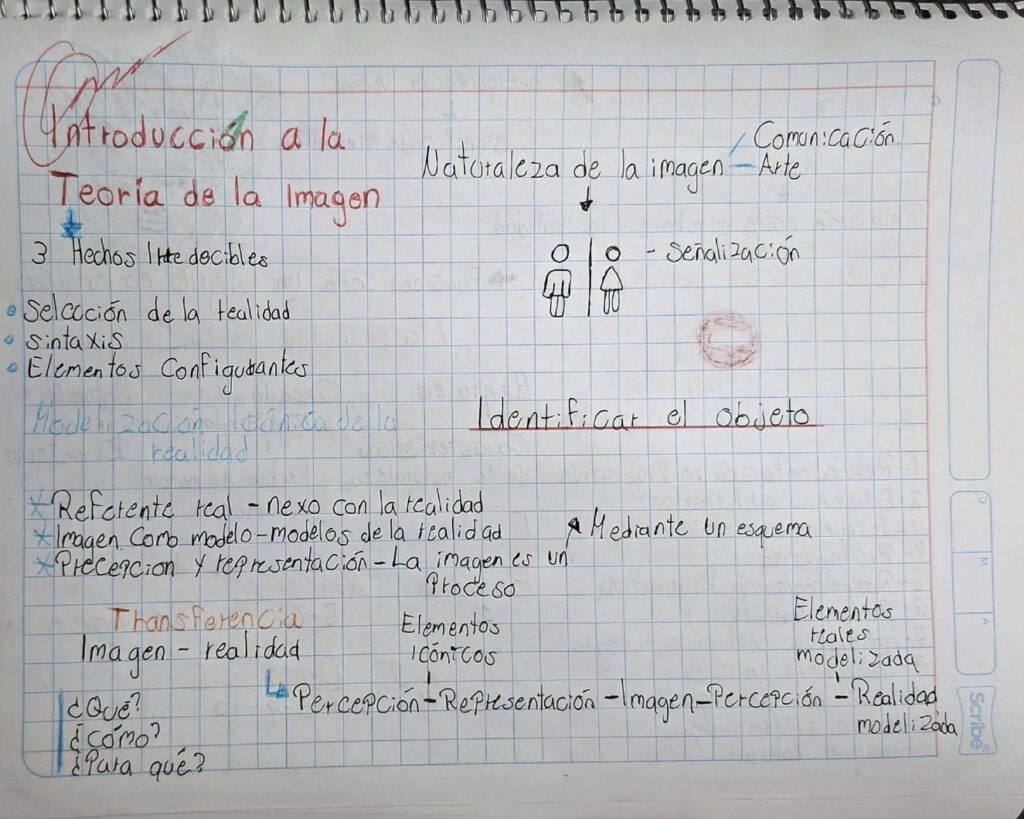 Introducción a la
Teoría de la Imagen
Naturaleza de la imagen
Comunicación
Arte
3 Hechos
- Señalización
Selección de la realidad
Sintaxis
Elementos Configurantes
Modelización Icónica de la
realidad
Identificar el objeto
Referente real - nexo con la realidad
Imagen como modelo - modelos de la realidad
Precepcion y representación - La imagen es un
Proceso
Mediante un esquema
Transferencia
Imagen - realidad
Elementos
icónicos
Elementos
reales
modelizada
Percepción - Representación - Imagen - Percepción - Realidad
modelizada
¿Qué?
¿Cómo?
¿Para qué?
D
M
A
Scribe®